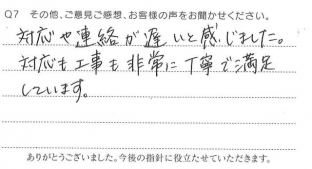 Q7 その他、ご意見ご感想、お客様の声をお聞かせください。
対応や連絡が遅いと感じました。
対応も工事も非常に丁寧で満足
しています。
ありがとうございました。今後の指針に役立たせていただきます。